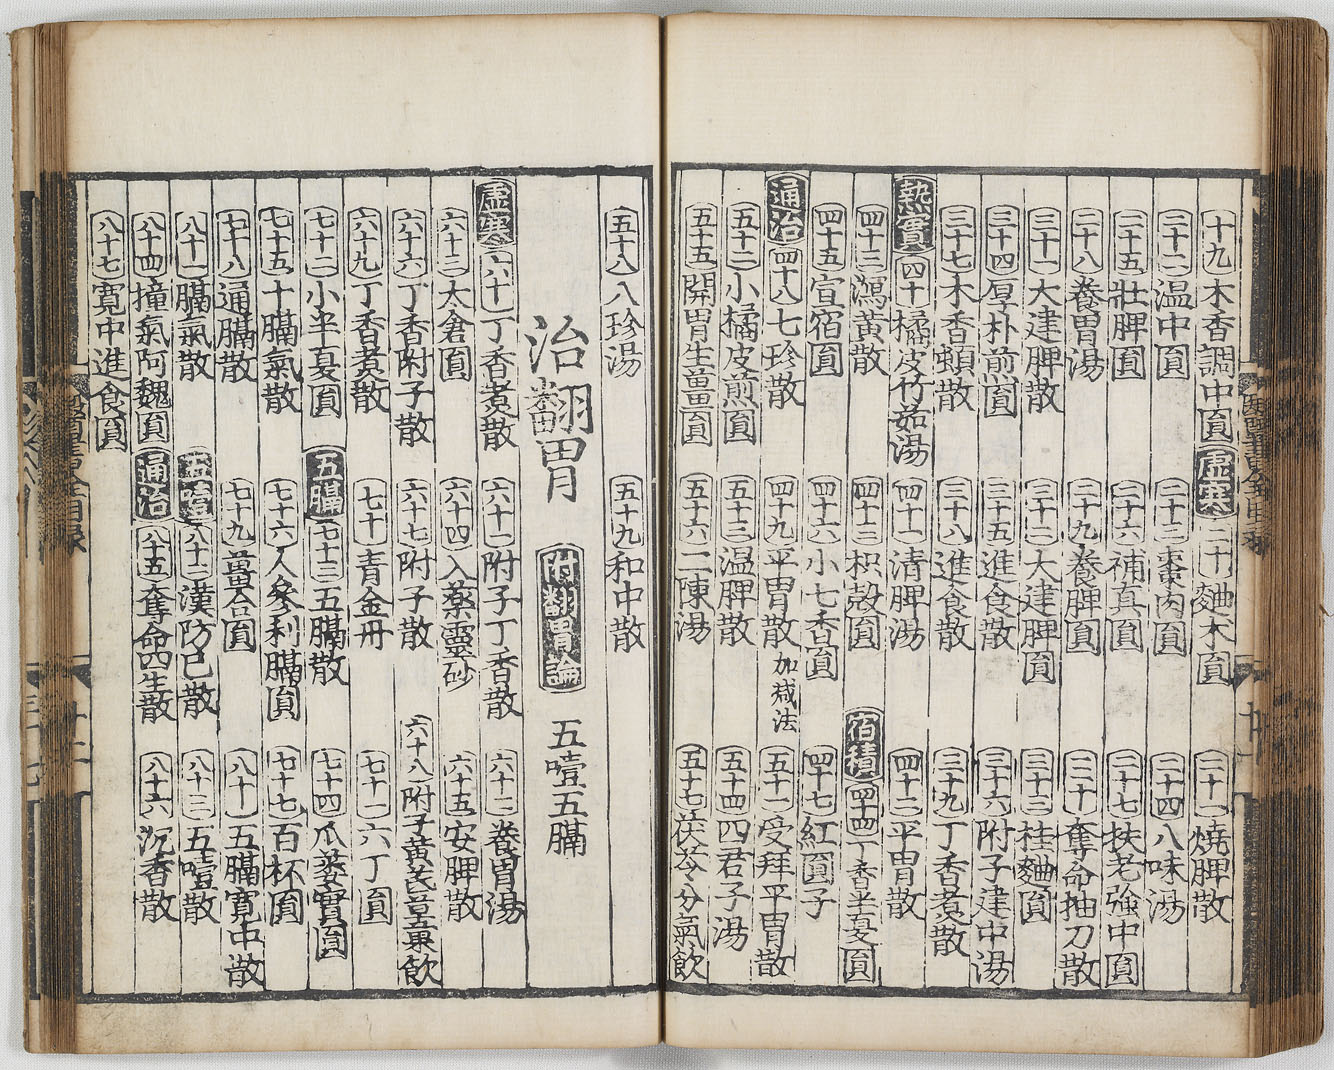 十九木香調中圓 虛寒 二十麯朮圓 二十一燒脾散
二十二温中圓 二十三棗肉圓 二十四八味湯
二十五壯脾圓 二十六補真圓 二十七扶老強中圓
二十八養胃湯 二十九養脾圓 三十奪命抽刀散
三十一大建脾散 三十二大建脾圓 三十三桂麯圓
三十四厚朴煎圓 三十五進食散 三十六附子建中湯
三十七木香蝢散 三十八進食散 三十九丁香煮散
熱實 四十橘皮竹茹湯 四十一清脾湯 四十二平胃散
四十三瀉黃散 四十三枳殼圓 宿積 四十四丁香半夏圓
四十五宣宿圓 四十六小七香圓 四十七紅圓子
通治 四十八七珍散 四十九平胃散加减法 五十一受拜平胃散
五十二小橘皮煎圓 五十三温脾散 五十四四君子湯
五十五開胃生薑圓 五十六二陳湯 五十七茯苓分氣飲
五十八八珍湯 五十九和中散
治翻胃 附翻胃論 五噎五膈
虛寒 六十丁香煮散 六十一附子丁香散 六十二養胃湯
六十三太倉圓 六十四入藥靈砂 六十五安脾散
六十六丁香附子散 六十七附子散 六十八附子黃芪草菓飲
六十九丁香煮散 七十青金丹 七十一六丁圓
七十二小半夏圓 五膈 七十三五膈散 七十四瓜蔞實圓
七十五十膈氣散 七十六人參利膈圓 七十七百杯圓
七十八通膈散 七十九薑合圓 八十五膈寬中散
八十一膈氣散 五噎 八十二漢防己散 八十三五噎散
八十四撞氣阿魏圓 通治 八十五奪命四生散 八十六沉香散
八十七寬中進食圓